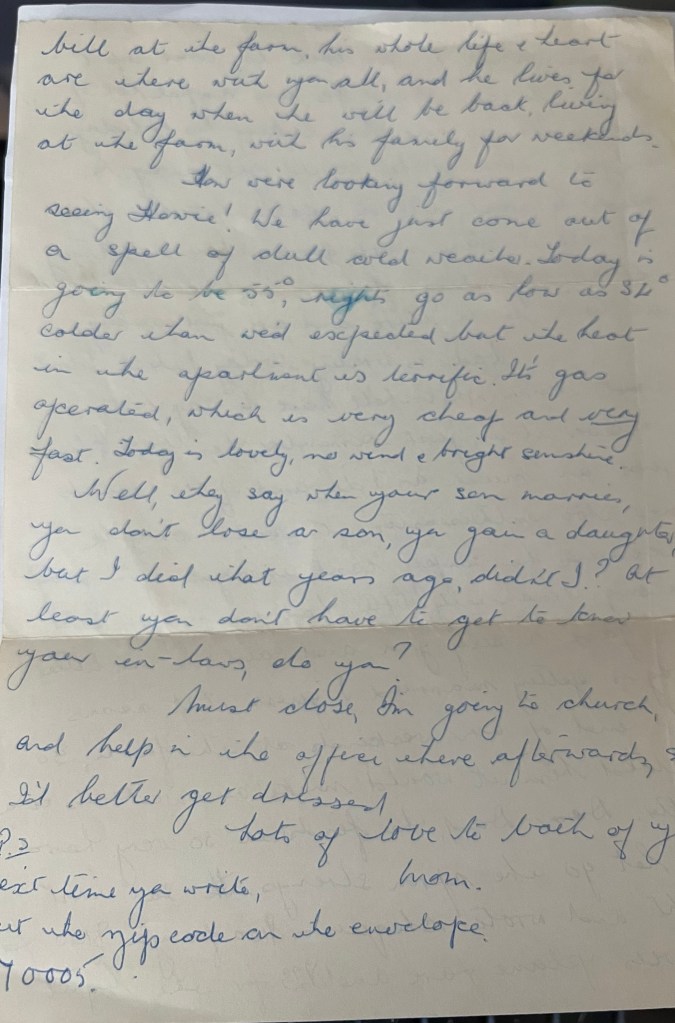 bill at the farm, his whole life & heart
are there with you all, and he lives for
the day when he will be back, living
at the farm, with his family for weekends.
How we're looking forward to
seeing Howie! We have just come out of
a spell of dull cold weather. Today is
going to be 55°, nights go as low as 34°
colder than we'd expected but the heat
in the apartment is terrific. It's gas
operated, which is very cheap and very
fast. Today is lovely, no wind & bright sunshine.
Well, they say when your son marries,
you don't lose a son, you gain a daughter,
but I did that years ago, didn't I? At
least you don't have to get to know
your in-laws, do you?
Must close, I'm going to church,
and help in the office there afterwards,
I'd better get dressed
Lots of love to both of
Mom.
P.S
ext time you write,
ut the zip code on the envelope.
70005.